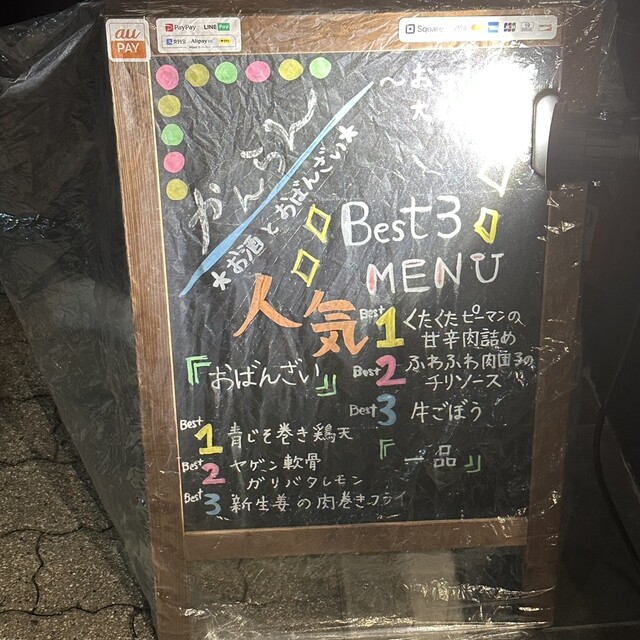 au
PAY
PayPay
LINE Pay
Alipay
Square
VISA
~お
大
かんらん
*お酒とおばんざい*
Best3
MENU
人気
『おばんざい』
Best 1 くたくたピーマンの
甘辛肉詰め
Best 2 ふわふわ肉団子の
チリソース
Best 3 牛ごぼう
『一品』
Best 1 青じそ巻き鶏天
Best 2 ヤゲン軟骨
ガリバタレモン
Best 3 新生姜の肉巻きフライ